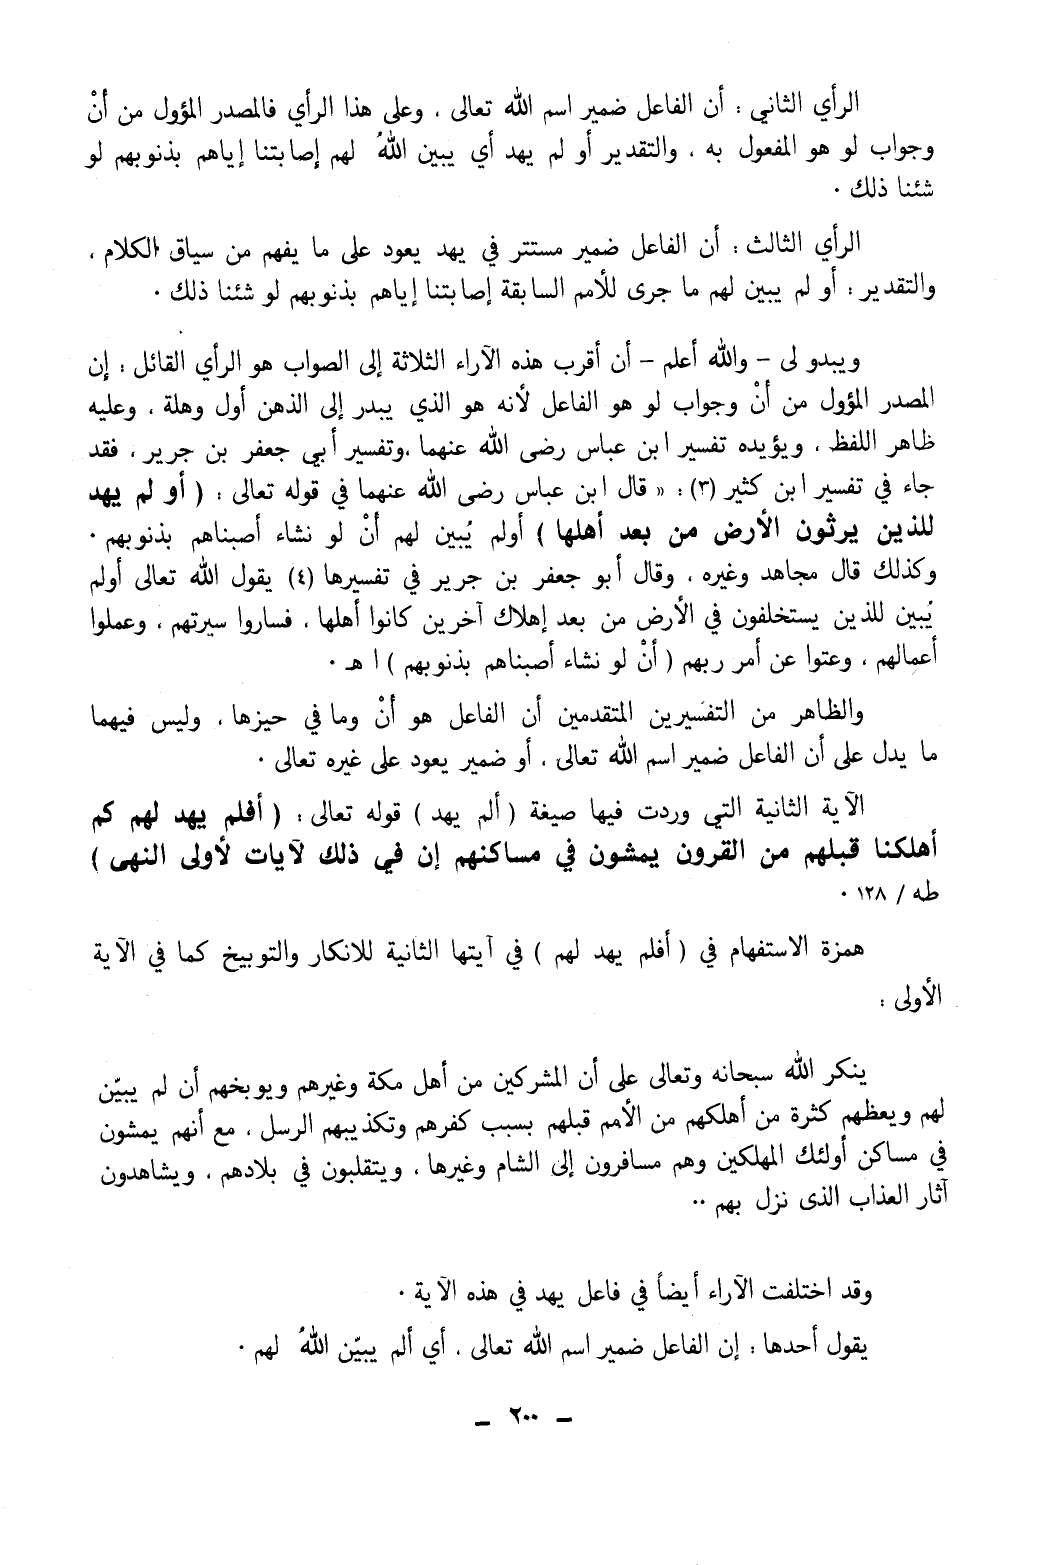 الرأي الثاني : أن الفاعل ضمير اسم الله تعالى ، وعلى هذا الرأي فالمصدر المؤول من أنْ
وجواب لو هو المفعول به ، والتقدير أو لم يهد أي يبين اللهُ لهم إصابتنا إياهم بذنوبهم لو
شئنا ذلك ٠
الرأي الثالث : أن الفاعل ضمير مستتر في يهد يعود على ما يفهم من سياق الكلام ،
والتقدير : أو لم يبين لهم ما جرى للأمم السابقة إصابتنا إياهم بذنوبهم لو شئنا ذلك ٠
ويبدو لى – والله أعلم – أن أقرب هذه الآراء الثلاثة إلى الصواب هو الرأي القائل : إن
المصدر المؤول من أنْ وجواب لو هو الفاعل لأنه هو الذي يبدر إلى الذهن أول وهلة ، وعليه
ظاهر اللفظ ، ويؤيده تفسير ابن عباس رضى الله عنهما ،وتفسير أبي جعفر بن جرير ، فقد
جاء في تفسير ابن كثير (٣) : « قال ابن عباس رضى الله عنهما في قوله تعالى : ( أو لم يهد
للذين يرثون الأرض من بعد أهلها ) أولم يُبين لهم أنْ لو نشاء أصبناهم بذنوبهم ٠
وكذلك قال مجاهد وغيره ، وقال أبو جعفر بن جرير في تفسيرها (٤) يقول الله تعالى أولم
يُبين للذين يستخلفون في الأرض من بعد إهلاك آخرين كانوا أهلها ، فساروا سيرتهم ، وعملوا
أعمالهم ، وعتوا عن أمر ربهم ( أنْ لو نشاء أصبناهم بذنوبهم ) ا هـ ٠
والظاهر من التفسيرين المتقدمين أن الفاعل هو أنْ وما في حيزها ، وليس فيهما
ما يدل على أن الفاعل ضمير اسم الله تعالى ، أو ضمير يعود على غيره تعالى ٠
الآية الثانية التي وردت فيها صيغة ( ألم يهد ) قوله تعالى : ( أفلم يهد لهم كم
أهلكنا قبلهم من القرون يمشون في مساكنهم إن في ذلك لآيات لأولى النهى )
طه / ١٢٨ ٠
همزة الاستفهام في ( أفلم يهد لهم ) في آيتها الثانية للانكار والتوبيخ كما في الآية
الأولى :
ينكر الله سبحانه وتعالى على أن المشركين من أهل مكة وغيرهم ويوبخهم أن لم يبيّن
لهم ويعظهم كثرة من أهلكهم من الأمم قبلهم بسبب كفرهم وتكذيبهم الرسل ، مع أنهم يمشون
في مساكن أولئك المهلكين وهم مسافرون إلى الشام وغيرها ، ويتقلبون في بلادهم ، ويشاهدون
آثار العذاب الذى نزل بهم ٠٠
وقد اختلفت الآراء أيضاً في فاعل يهد في هذه الآية ٠
يقول أحدها : إن الفاعل ضمير اسم الله تعالى ، أي ألم يبيّن اللهُ لهم ٠
– ٢٠٠ –